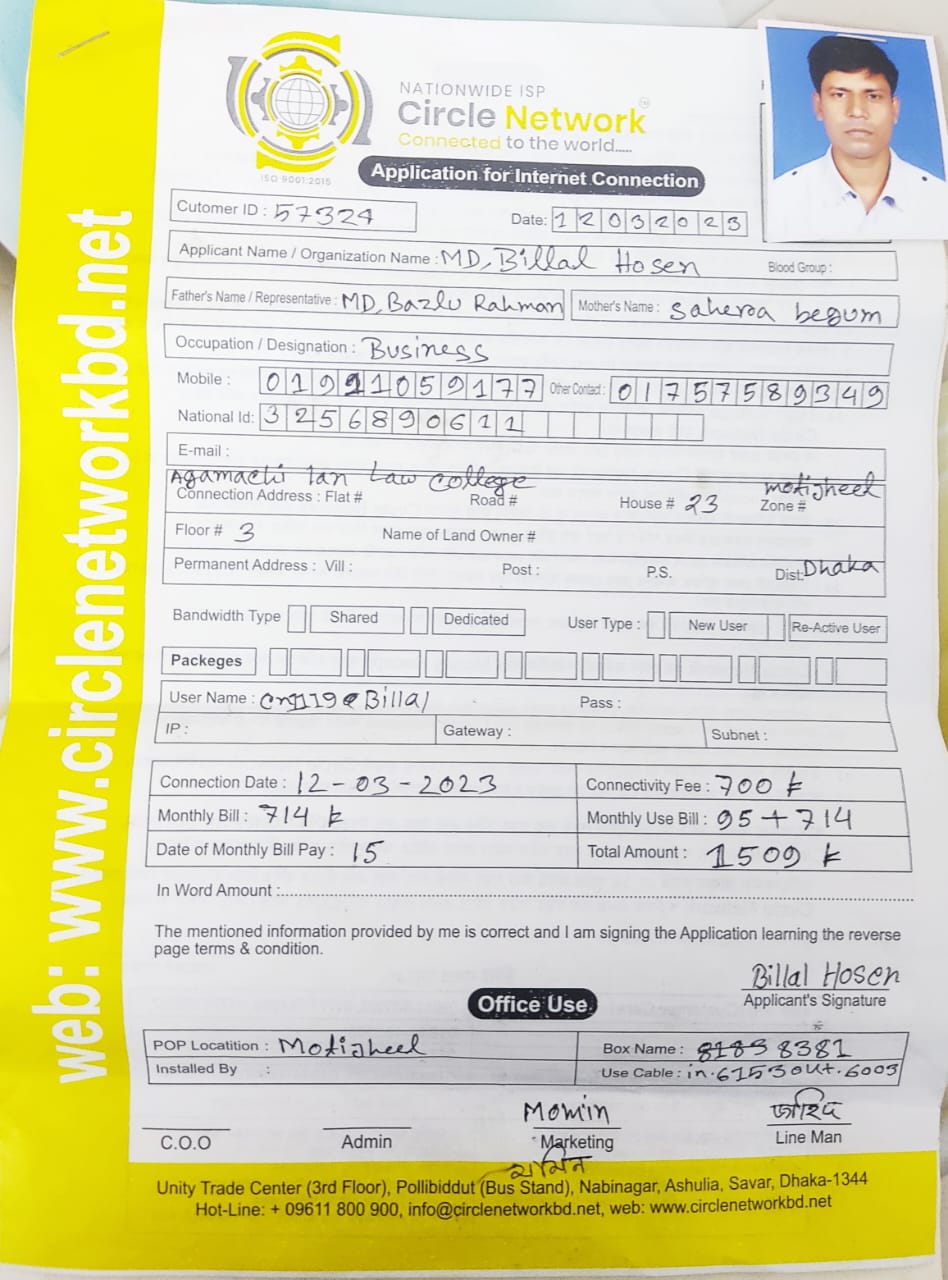 web: www.circlenetworkbd.net
NATIONWIDE ISP
Circle Network
Connected to the world.....
ISO 9001:2015
Application for Internet Connection
Cutomer ID : 57324
Date: 12032023
Applicant Name / Organization Name : MD, Billal Hosen Blood Group :
Father's Name / Representative : MD, Bazlu Rahman Mother's Name : Saheroa begum
Occupation / Designation : Business
Mobile : 01991059177 Other Contact : 01757589349
National Id: 3256890611
E-mail :
Agamachi Ian Law College motijheel
Connection Address : Flat # Road # House # 23 Zone #
Floor # 3 Name of Land Owner #
Permanent Address : Vill : Post : P.S. Dist: Dhaka
Bandwidth Type Shared Dedicated User Type : New User Re-Active User
Packeges
User Name : Billal Pass :
IP : Gateway : Subnet :
Connection Date : 12-03-2023 Connectivity Fee : 700 k
Monthly Bill : 714 k Monthly Use Bill : 95+714
Date of Monthly Bill Pay : 15 Total Amount : 1509 k
In Word Amount :
The mentioned information provided by me is correct and I am signing the Application learning the reverse
page terms & condition.
Billal Hosen
Applicant's Signature
Office Use
POP Locatition : Motijheel Box Name : 8183 8381
Installed By : Use Cable : in.6153 out.6003
Momin জাহিদ
C.O.O Admin Marketing Line Man
মমিন
Unity Trade Center (3rd Floor), Pollibiddut (Bus Stand), Nabinagar, Ashulia, Savar, Dhaka-1344
Hot-Line: + 09611 800 900, info@circlenetworkbd.net, web: www.circlenetworkbd.net